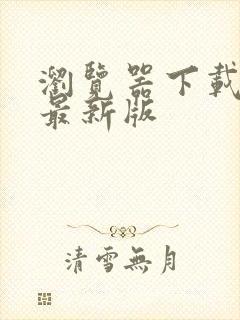 瀏覽器下載
最新版
清雪無月